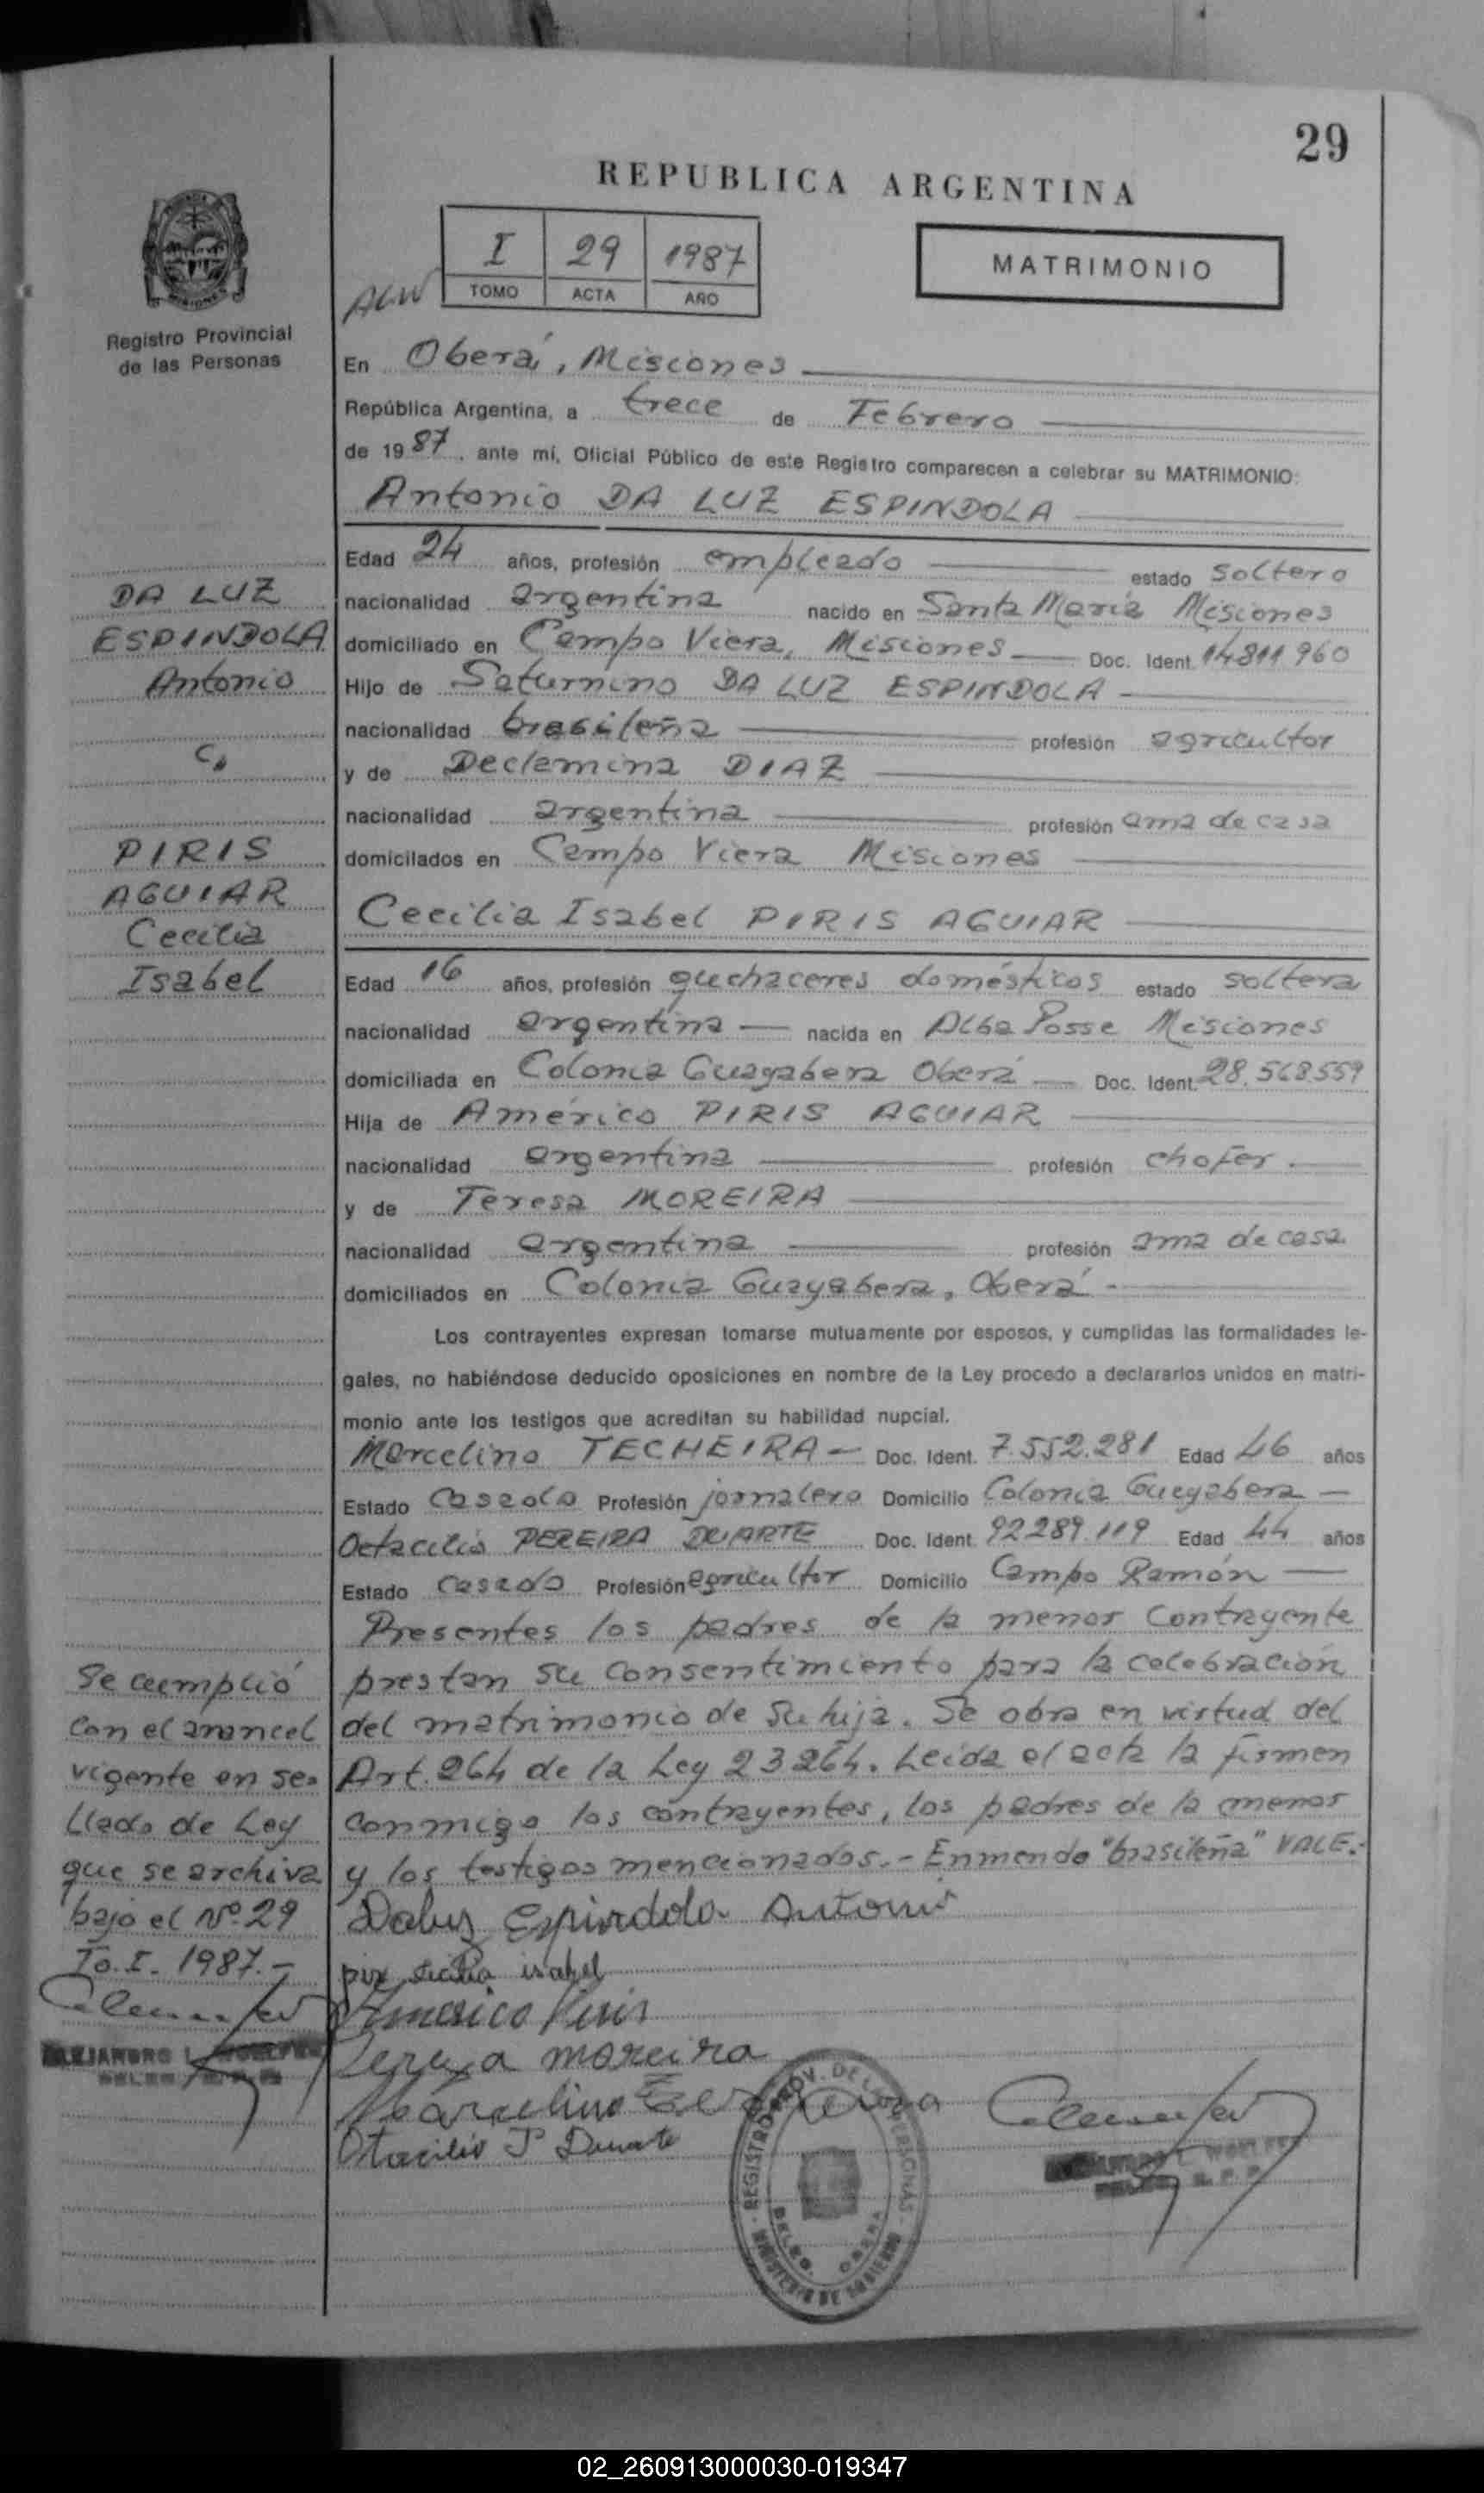 29
REPUBLICA ARGENTINA
I 29 1987
TOMO ACTA AÑO
MATRIMONIO
MISIONES
Registro Provincial
de las Personas
En Oberá, Misiones
República Argentina, a trece de Febrero
de 1987, ante mí, Oficial Público de este Registro comparecen a celebrar su MATRIMONIO:
Antonio DA LUZ ESPINDOLA
Edad 24 años, profesión empleado estado soltero
nacionalidad argentina nacido en Santa María Misiones
domiciliado en Campo Viera, Misiones Doc. Ident. 14.811.960
Hijo de Saturnino DA LUZ ESPINDOLA
nacionalidad brasileña profesión agricultor
y de Declemina DIAZ
nacionalidad argentina profesión ama de casa
domicilados en Campo Viera Misiones
Cecilia Isabel PIRIS AGUIAR
Edad 16 años, profesión quehaceres domésticos estado soltera
nacionalidad argentina nacida en Alba Posse Misiones
domiciliada en Colonia Guayabera Oberá Doc. Ident. 28.568.559
Hija de Américo PIRIS AGUIAR
nacionalidad argentina profesión chofer.
y de Teresa MOREIRA
nacionalidad argentina profesión ama de casa
domiciliados en Colonia Guayabera, Oberá -
Los contrayentes expresan tomarse mutuamente por esposos, y cumplidas las formalidades le-
gales, no habiéndose deducido oposiciones en nombre de la Ley procedo a declararlos unidos en matri-
monio ante los testigos que acreditan su habilidad nupcial.
Marcelino TECHEIRA - Doc. Ident. 7.552.281 Edad 46 años
Estado casado Profesión jornalero Domicilio Colonia Guayabera -
Octacilio PEREIRA DUARTE Doc. Ident. 92289.119 Edad 44 años
Estado casado Profesión agricultor Domicilio Campo Ramón
Presentes los padres de la menor contrayente
prestan su consentimiento para la celebración
del matrimonio de su hija. Se obra en virtud del
Art. 264 de la Ley 23264. Leída el acta la firman
conmigo los contrayentes, los padres de la menor
y los testigos mencionados.- Enmendo "brasileña" VALE.-
Daluz Espindola Antonio
isabel
Americo Piris
Tereza moreira
Marcelino
Otacilio P Duarte
DA LUZ
ESPINDOLA
Antonio
C.
PIRIS
AGUIAR
Cecilia
Isabel
Se cumplió
con el arancel
vigente en se-
llado de Ley
que se archiva
bajo el Nº 29
To. I. 1987.-
ALEJANDRO
REGISTRO PROV. DE LAS PERSONAS
DELEG. OBERA
MINISTERIO DE GOBIERNO
02_260913000030-019347